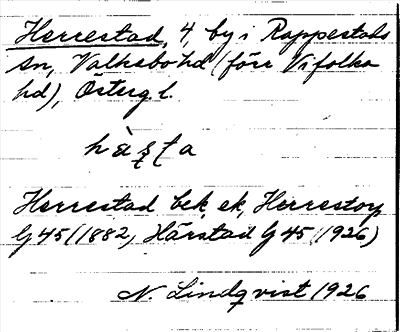 Herrestad, 4, by i Rappestads
sn, Valkebo hd (förr Vifolka
hd), Östergl.
hàʂʈa
Herrestad bek, ek, Herrestorp
G45 (1882, Härstad G 45, 1926)
N. Lindqvist 1926